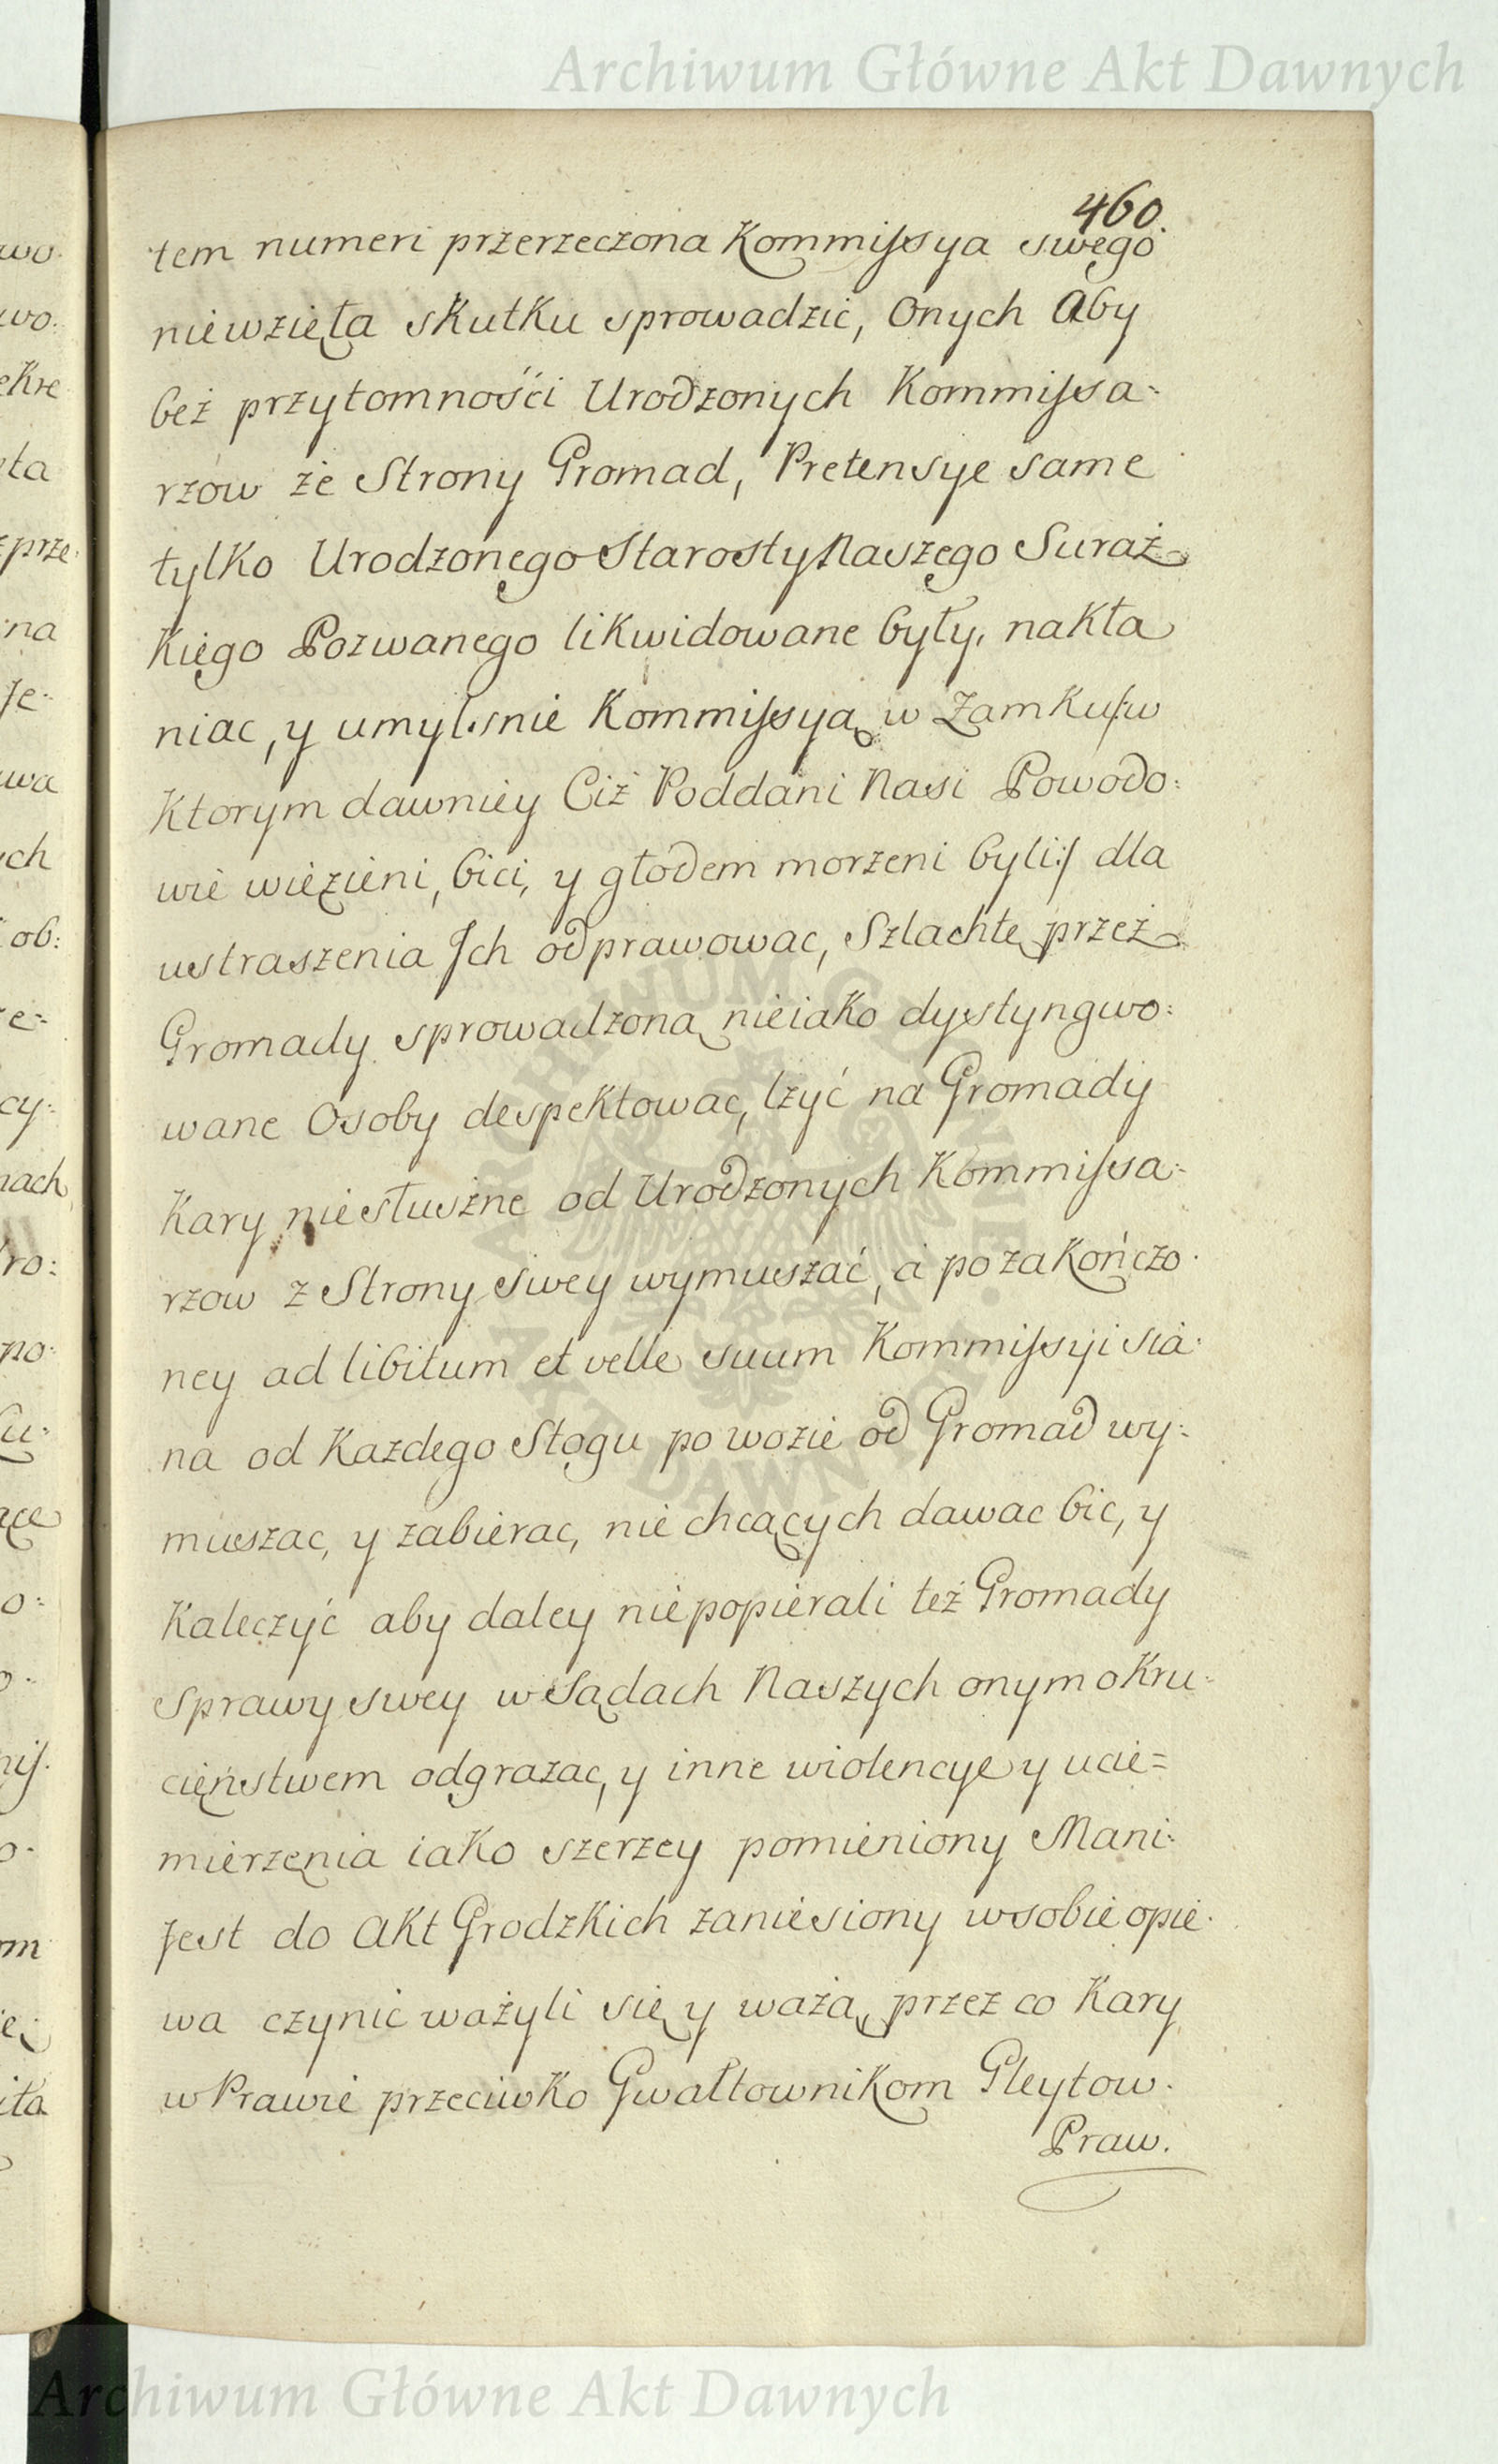 Archiwum Główne Akt Dawnych
460.
tem numeri przerzeczona Kommissya swego
niewzięła skutku sprowadzić, Onych Aby
beż przytomnośći Urodzonych Kommissa-
rzow że Strony Gromad, Pretensye same
tylko Urodzonego Starosty Naszego Suraż
Kiego Pozwanego likwidowane były, nakła
niac, y umylsnie Kommissyą w Zamku /:w
Ktorym dawniey Ciż Poddani Nasi Powodo:
wie więzieni, bici, y głodem morzeni byli:/ dla
ustraszenia Ich odprawowac, Szlachtę przeż
Gromady sprowadzoną nieiako dystyngwo:
wane Osoby despektowac, lzyć na Gromady
Kary niesłuszne od Urodzonych Kommissa-
rzow z Strony swey wymuszać, a po zakończo-
ney ad libitum et velle suum Kommissyi sia-
na od Kazdego Stogu po wozie od Gromad wy:
muszac, y zabierac, nie chcących dawac bic, y
Kaleczyć aby daley niepopierali też Gromady
sprawy swey w Sądach Naszych onym okru-
cieństwem odgrazac, y inne wiolencye y ucie=
mierzenia iako szerzey pomieniony Mani-
fest do Akt Grodzkich zaniesiony w sobie opie-
wa czynic ważyli się y ważą, przez co Kary
w Prawie przeciwko Gwałtownikom Gleytow.
Praw.
Archiwum Główne Akt Dawnych